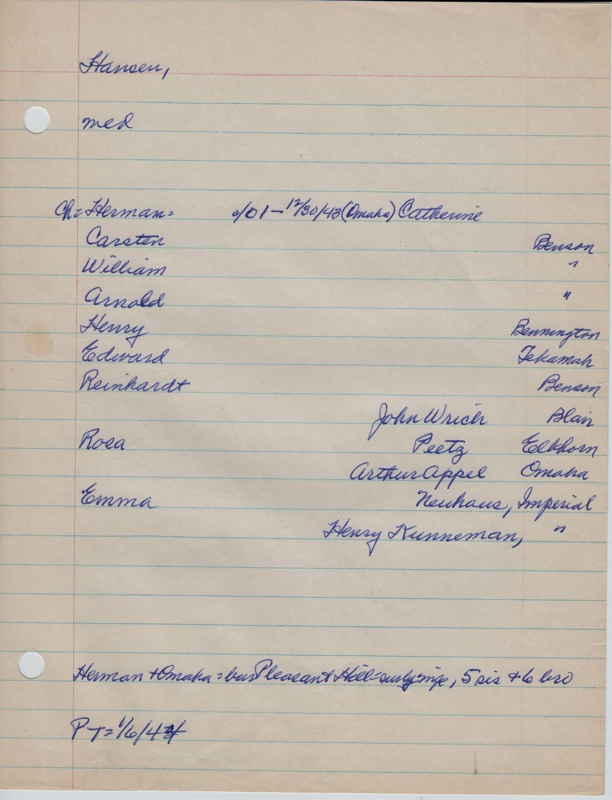 Hansen,
med
Ch = Herman = 0/01 - 12/30/43 (Omaha) Catherine
Carsten Benson
William "
Arnold "
Henry Bennington
Edward Tekamah
Reinhardt Benson
John Wrich Blair
Rosa Peetz Elkhorn
Arthur Appel Omaha
Emma Neuhaus, Imperial
Henry Kunneman, "
Herman + Omaha = bur Pleasant Hill = surv = , 5 sis + 6 bro
P T = 1/6/44